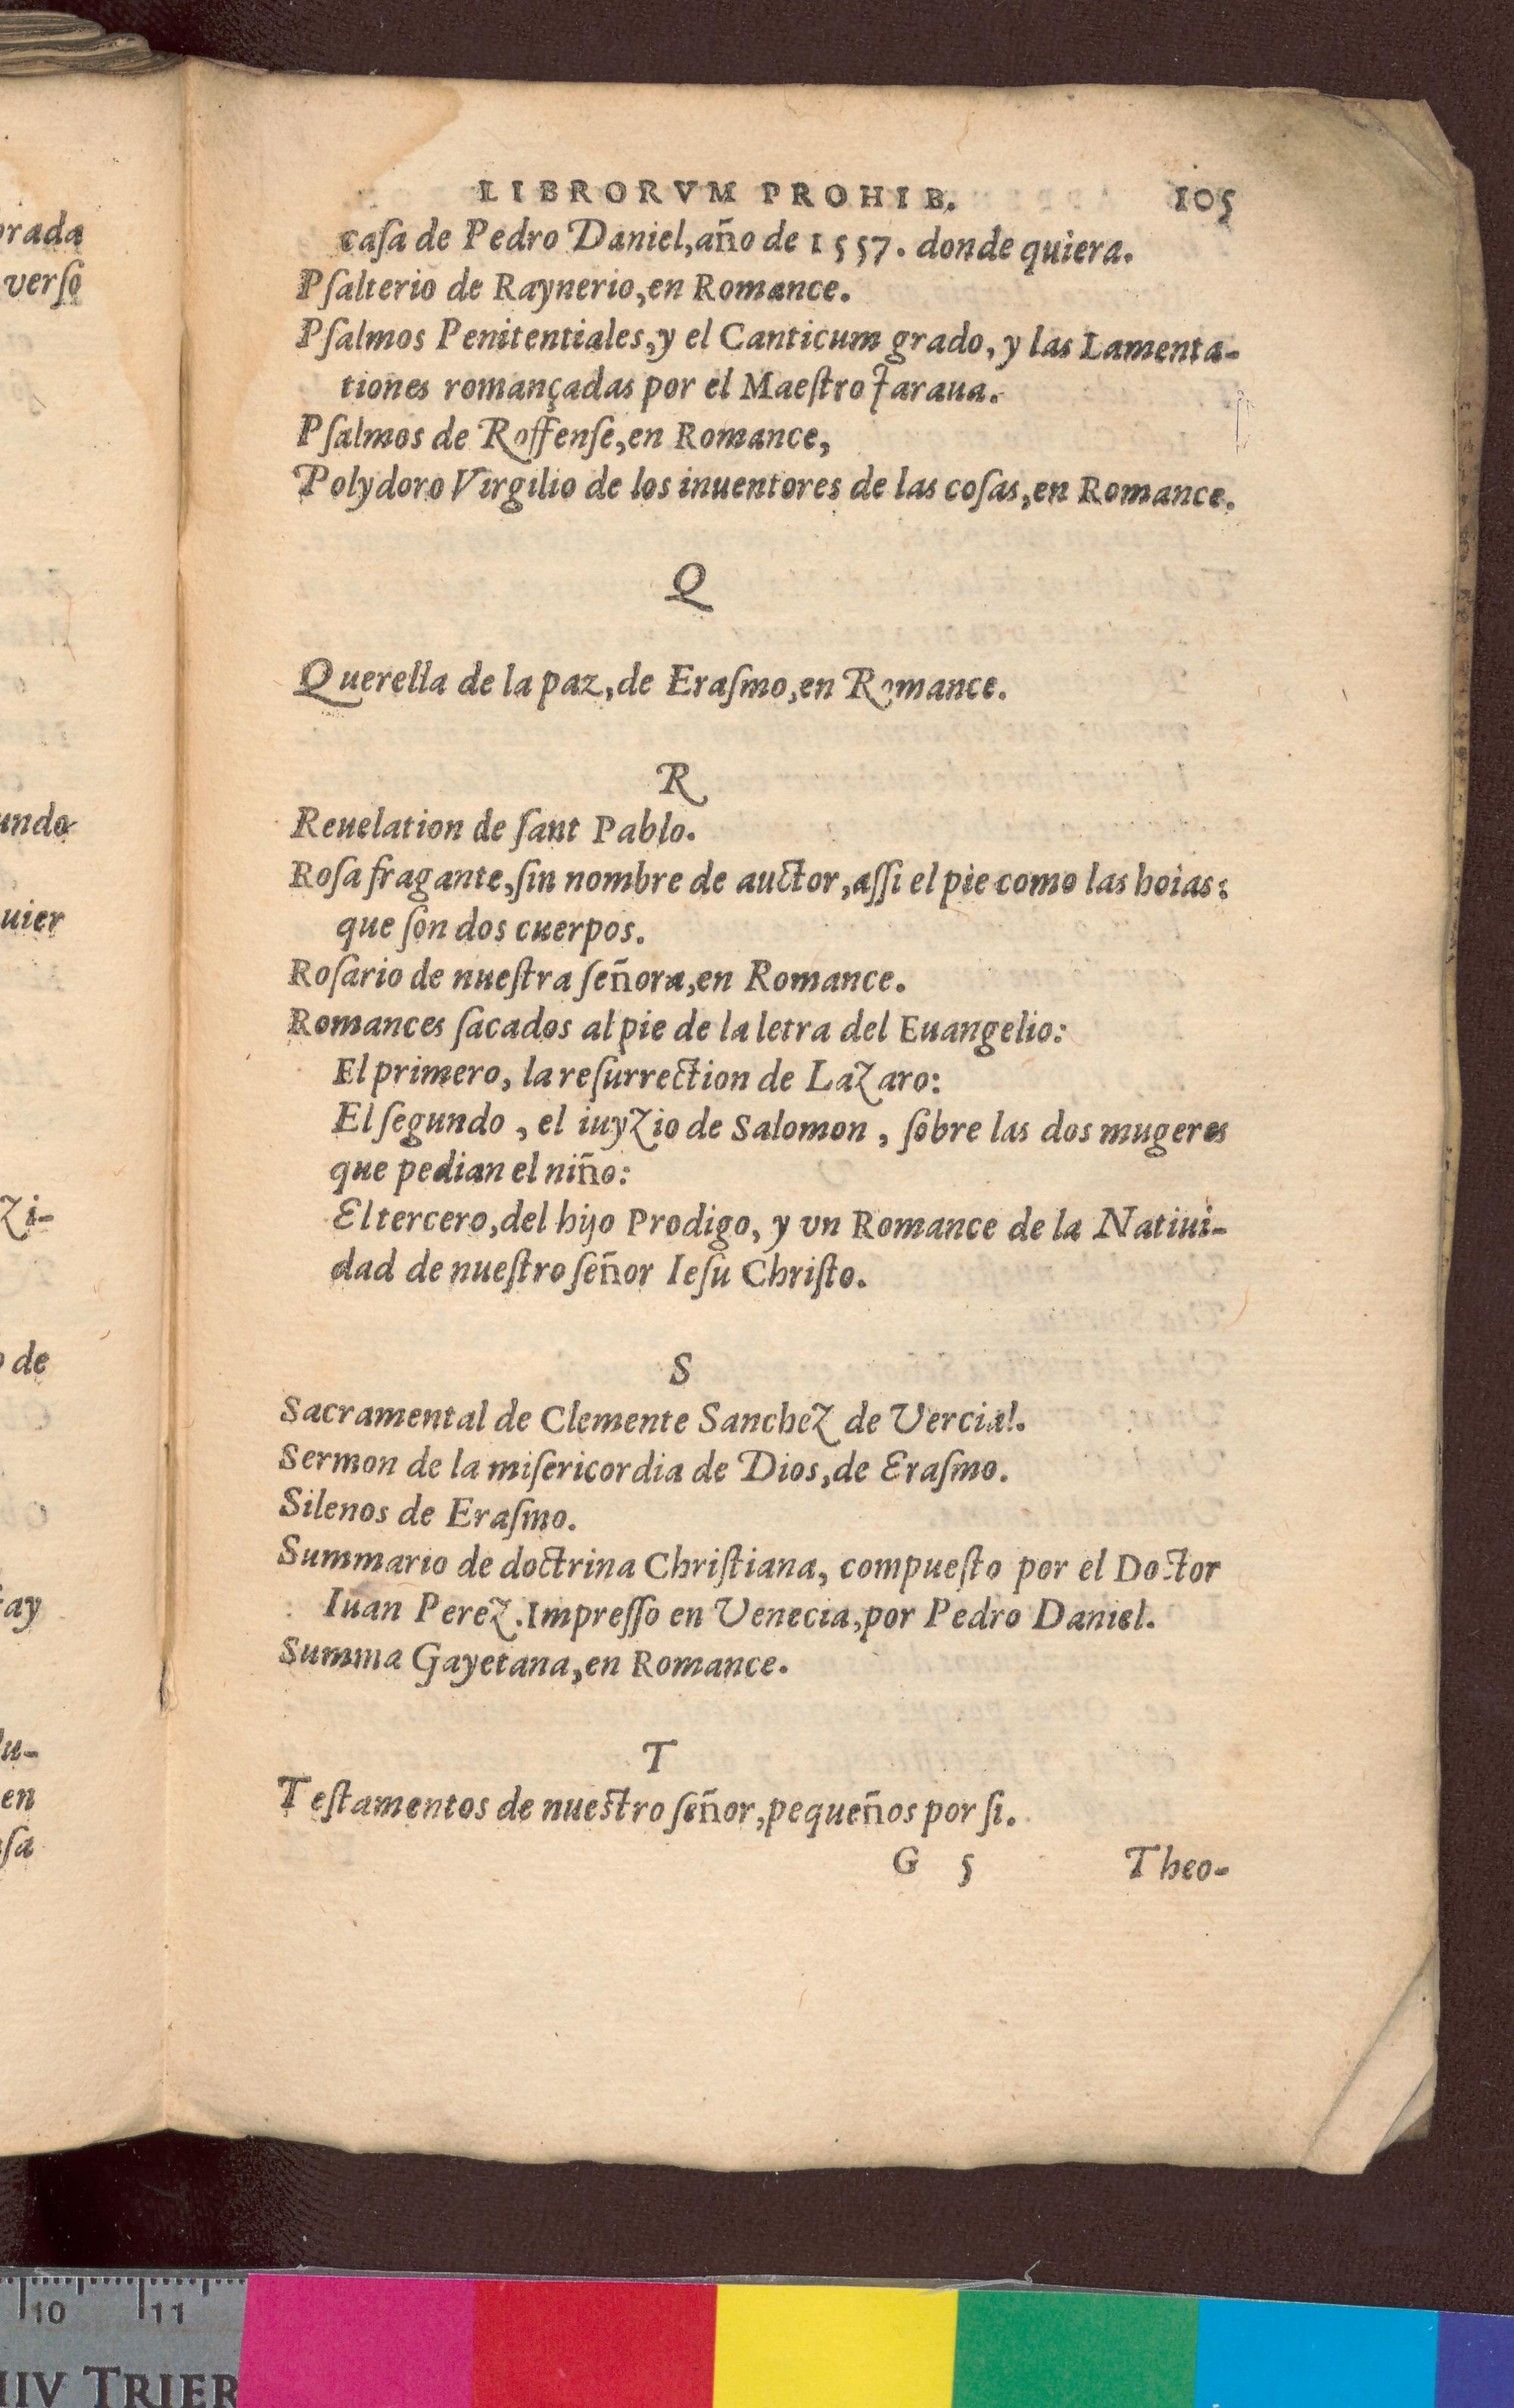 orada
verſo
undo
uier
zi-
o de
ay
u-
en
ſa
LIBRORVM PROHIB. 105
caſa de Pedro Daniel, año de 1557. donde quiera.
Pſalterio de Raynerio, en Romance.
Pſalmos Penitentiales, y el Canticum grado, y las Lamenta-
tiones romançadas por el Maeſtro Jaraua.
Pſalmos de Roffenſe, en Romance,
Polydoro Virgilio de los inuentores de las coſas, en Romance.
Q
Querella de la paz, de Eraſmo, en Romance.
R
Reuelation de ſant Pablo.
Roſa fragante, ſin nombre de auctor, aſſi el pie como las hoias:
que ſon dos cuerpos.
Roſario de nueſtra ſeñora, en Romance.
Romances ſacados al pie de la letra del Euangelio:
El primero, la reſurrection de Lazaro:
El ſegundo, el iuyzio de Salomon, ſobre las dos mugeres
que pedian el niño:
El tercero, del hijo Prodigo, y vn Romance de la Natiui-
dad de nueſtro ſeñor Ieſu Chriſto.
S
Sacramental de Clemente Sanchez de Vercial.
Sermon de la miſericordia de Dios, de Eraſmo.
Silenos de Eraſmo.
Summario de doctrina Chriſtiana, compueſto por el Doctor
Iuan Perez. Impreſſo en Venecia, por Pedro Daniel.
Summa Gayetana, en Romance.
T
Teſtamentos de nueſtro ſeñor, pequeños por ſi.
G 5 Theo-
10 11
HIV TRIER